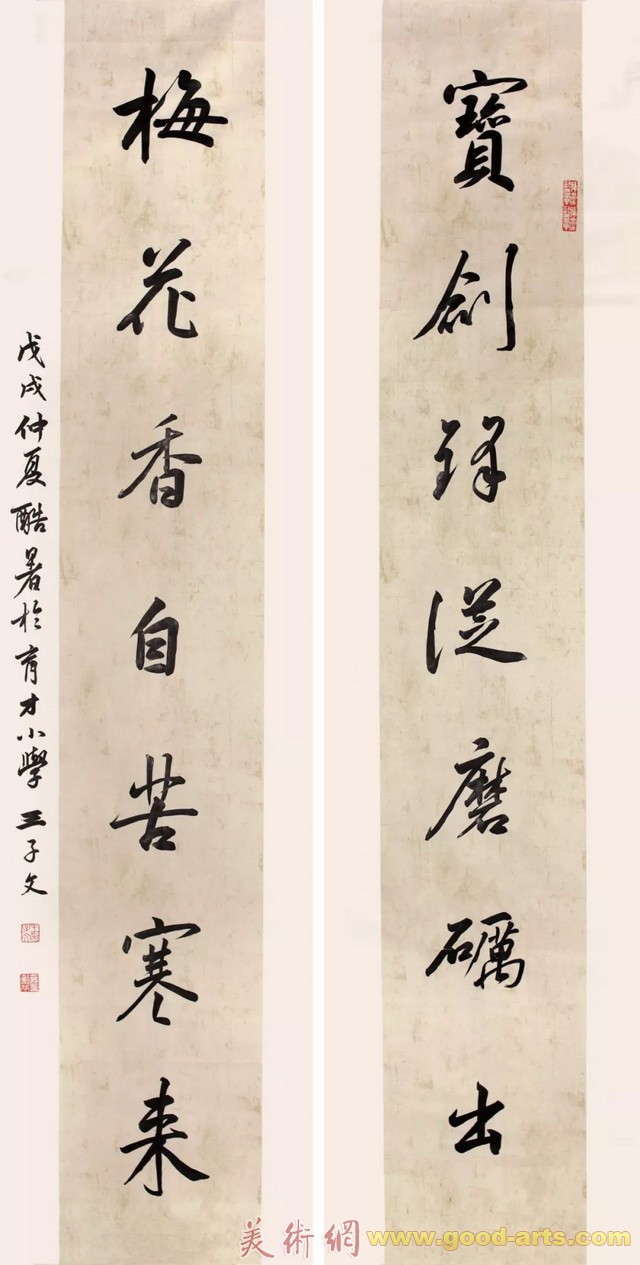 寶劍鋒從磨礪出
梅花香自苦寒来
戊戌仲夏酷暑於育才小學王子文
美術網 www.good-arts.com